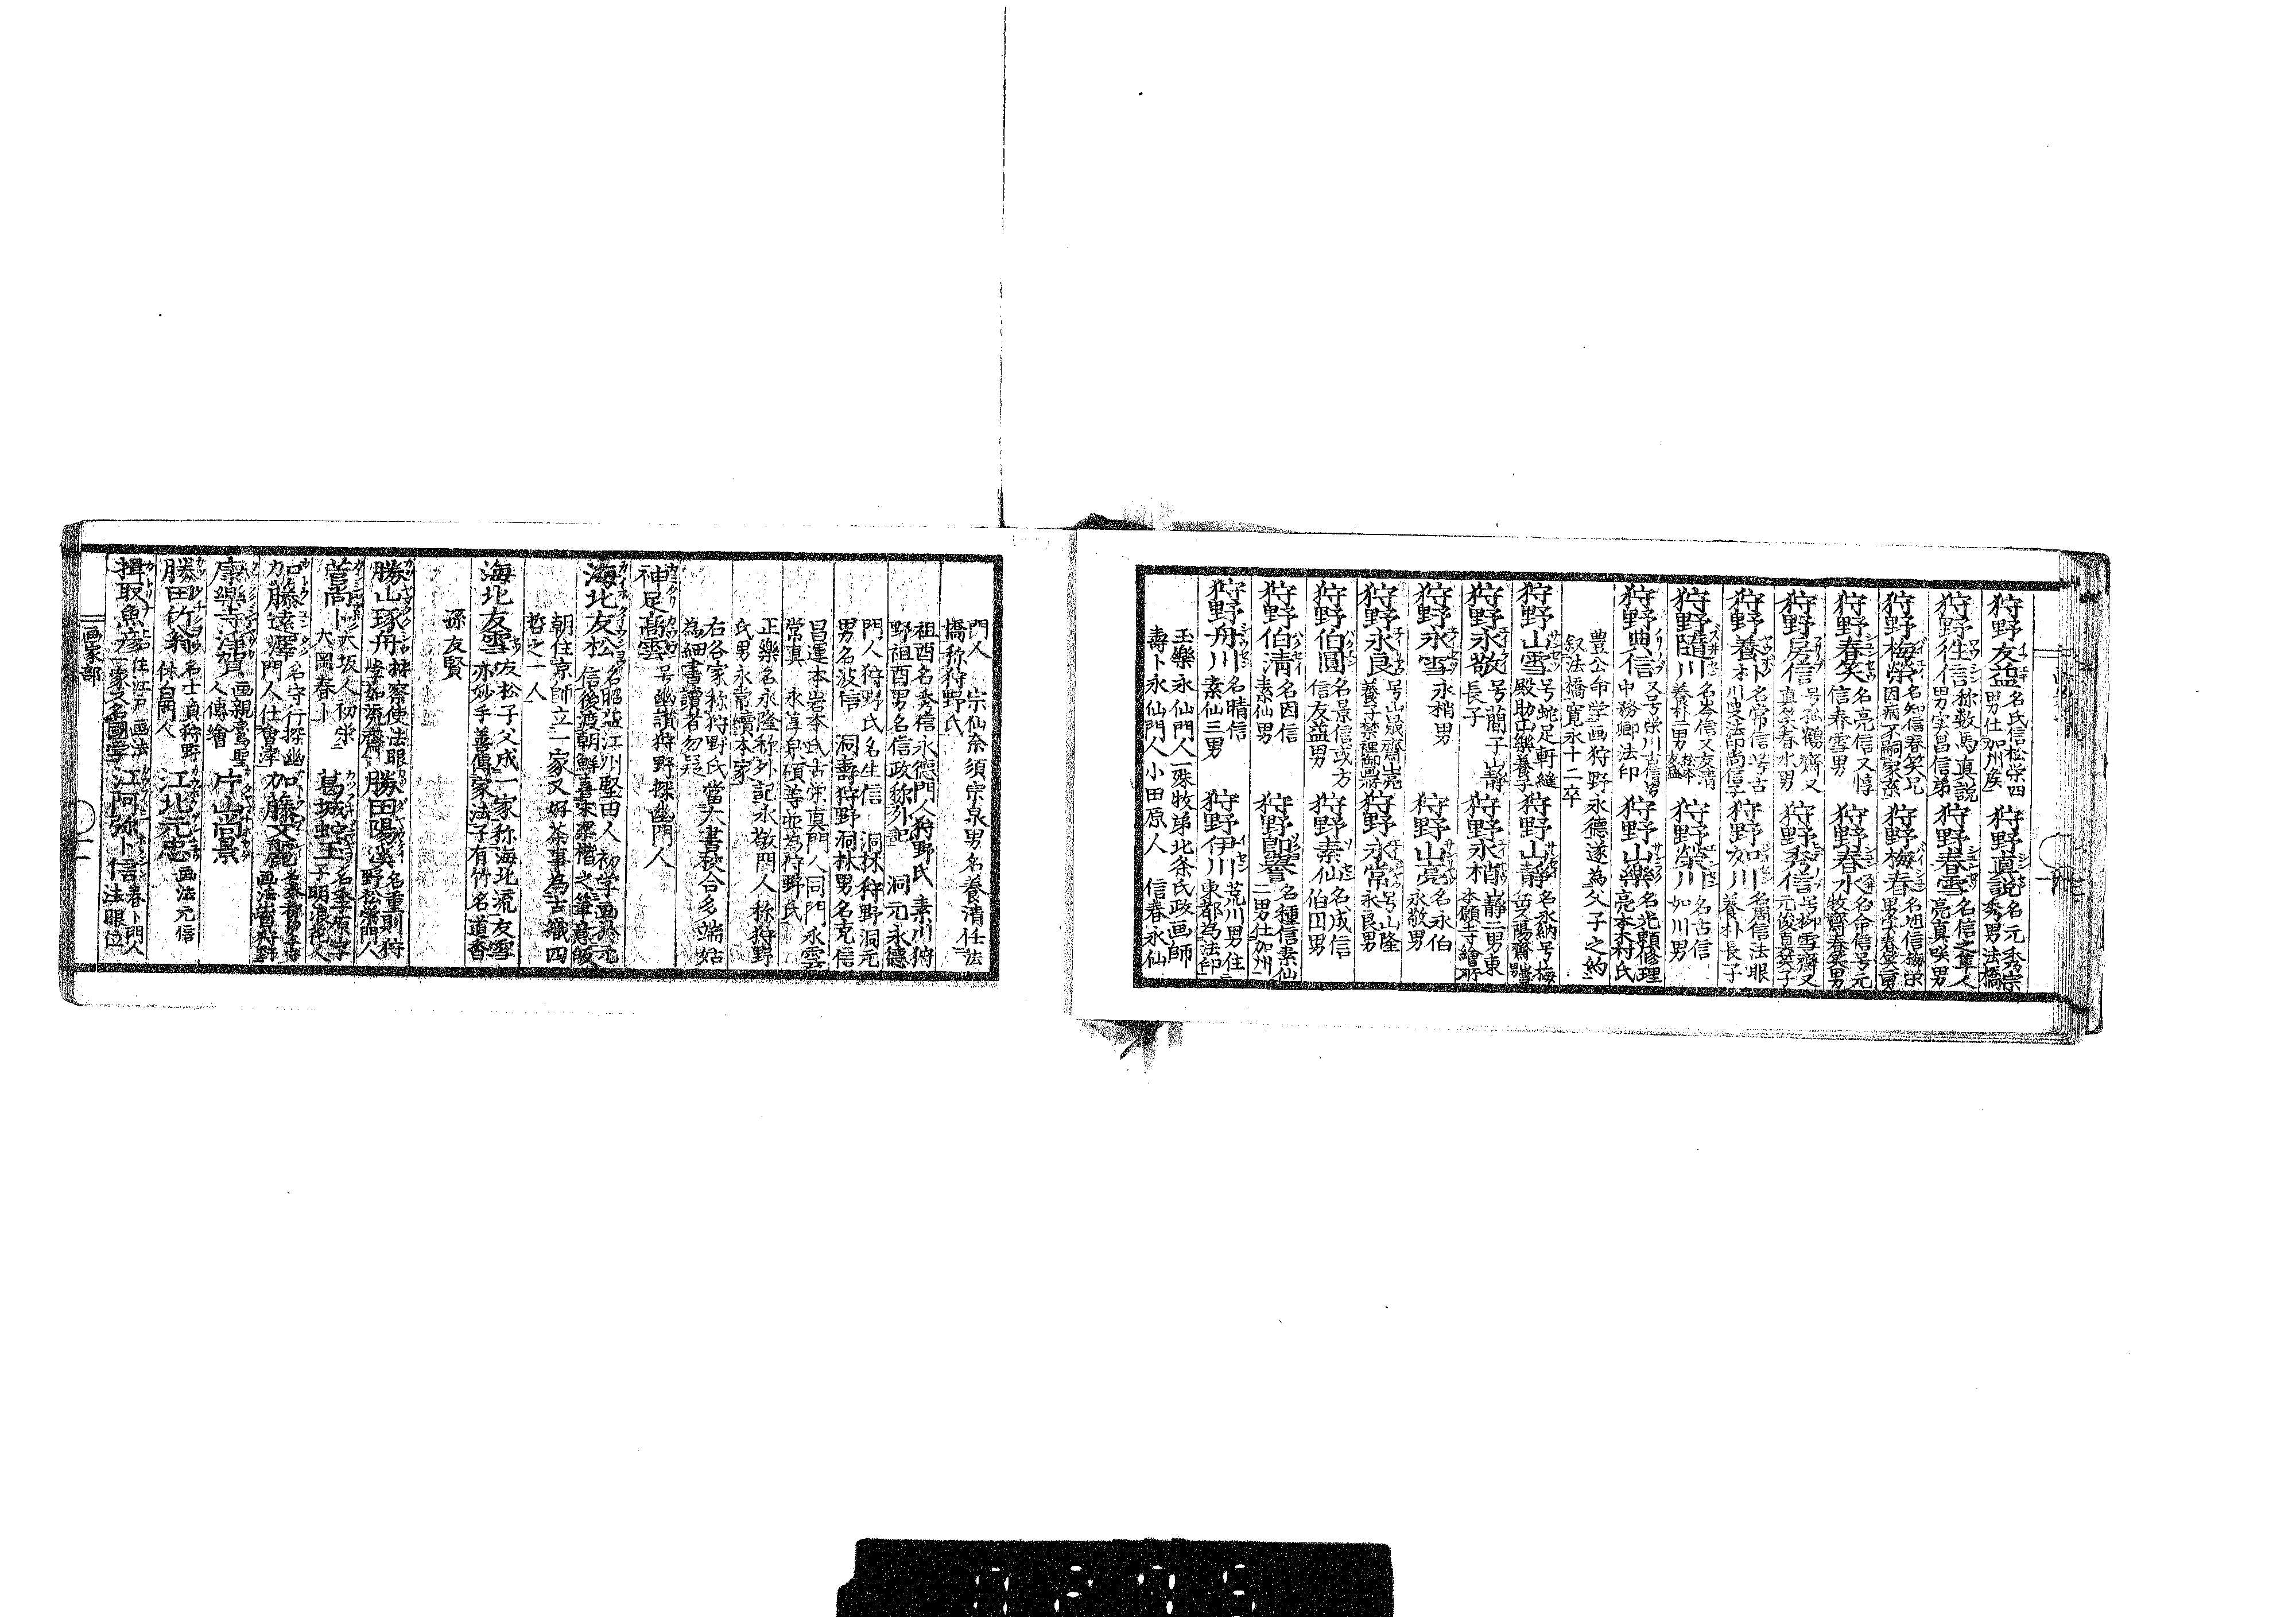 狩野友益 名氏信松栄四男仕加州侯
狩野真説 名元秀宗秀男法橋
狩野性信 称数馬真説男実昌信弟
狩野春雪 名信之隼人亮真咲男
狩野梅榮 名知信春笑兄因病不嗣家業
狩野梅春 名旭信梅栄男実春笑男
狩野春笑 名亮信又惇信春雪男
狩野春水 名命信号元牧齋春笑男
狩野房信 号孤鶴齋又真笑春水男
狩野秀信 号柳雪齋又元俊真笑子
狩野養朴 名常信号古川叟法印尚信子
狩野如川 名周信法眼養朴長子
狩野随川 名岑信又友清養朴二男
狩野榮川 名古信如川男
狩野典信 又号栄川古信男中務卿法印
狩野山樂 名光頼修理亮本木村氏
豊公命学画狩野永徳遂為父子之約
叙法橋寛永十二卒
狩野山雪 号蛇足軒縫殿助山樂養子
狩野山静 名永納号梅岳又陽齋山雪男
狩野永敬 号蕳子山静長子
狩野永梢 山静二男東本願寺繪所
狩野永雪 永梢男
狩野山亮 名永伯永敬男
狩野永良 号山晟齋山亮養子禁裡御畫
狩野永常 号山隆永良男
狩野伯圓 名景信或方信友益男
狩野素仙 名成信伯円男
狩野伯清 名因信素仙男
狩野即譽 名種信素仙二男仕加州
狩野舟川 名晴信素仙三男
狩野伊川 荒川男住東都為法印
玉樂 永仙門人 殊牧 弟北条氏政画師
壽卜 永仙門人小田原人 信春 永仙
門人 宗仙 奈須宗泉男名養清任法
橋称狩野氏
祖酉 名秀信永徳門人狩野氏 素川 狩
野祖酉男名信政称外記 洞元 永徳
門人狩野氏名生信 洞琳 狩野洞元
男名波信 洞壽 狩野洞林男名克信
昌運 本岩本氏古栄真門人同門永雲
常真 永淳 泉碩等並為狩野氏
正樂 名永隆称外記永敬門人称狩野
氏男永常續本家
右各家称狩野氏當大書校合多端姑
為細書讀者勿疑
神足高雲 号幽讃狩野探幽門人
海北友松 名昭益江州堅田人初学画於元
信後渡朝鮮喜宋梁楷之筆意皈
朝住京師立一家又好茶事為古織四
哲之一人
海北友雪 友松子父成一家称海北流友雪
亦妙手善傳家法子有竹名道香
孫友賢
勝山琢舟 按察使法眼学如流齋
勝田陽溪 名重則狩野松栄門人
萱尚卜 大坂人初学大岡春卜
葛城蛇玉 名季原字子明浪花人
加藤遠澤 名守行探幽門人仕會津
加藤文麗 画法学狩野
康樂寺淨賀 画親鸞聖人傳繪
片山尚景
勝田竹翁 名士貞狩野休白門人
江北元忠 画法元信
揖取魚彦 住江戸画法一家又名國学
江阿弥卜信 春卜門人法眼位
画家部